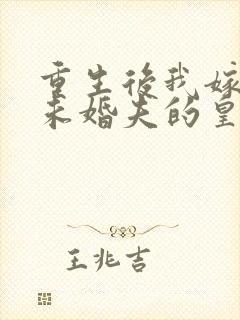 重生後我嫁
未婚夫的皇
王兆吉